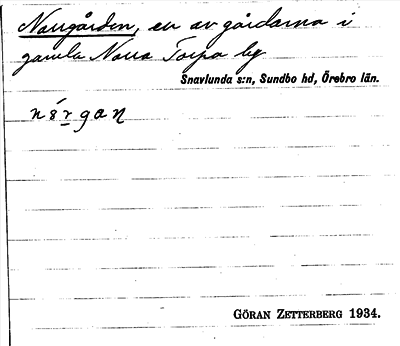 Norrgården, en av gårdarna i
gamla Norra Torpa by
Snavlunda s:n, Sundbo hd, Örebro län.
nórgan
GÖRAN ZETTERBERG 1934.